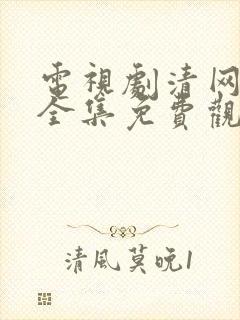 電視劇清网
全集免費觀
清風莫晚1